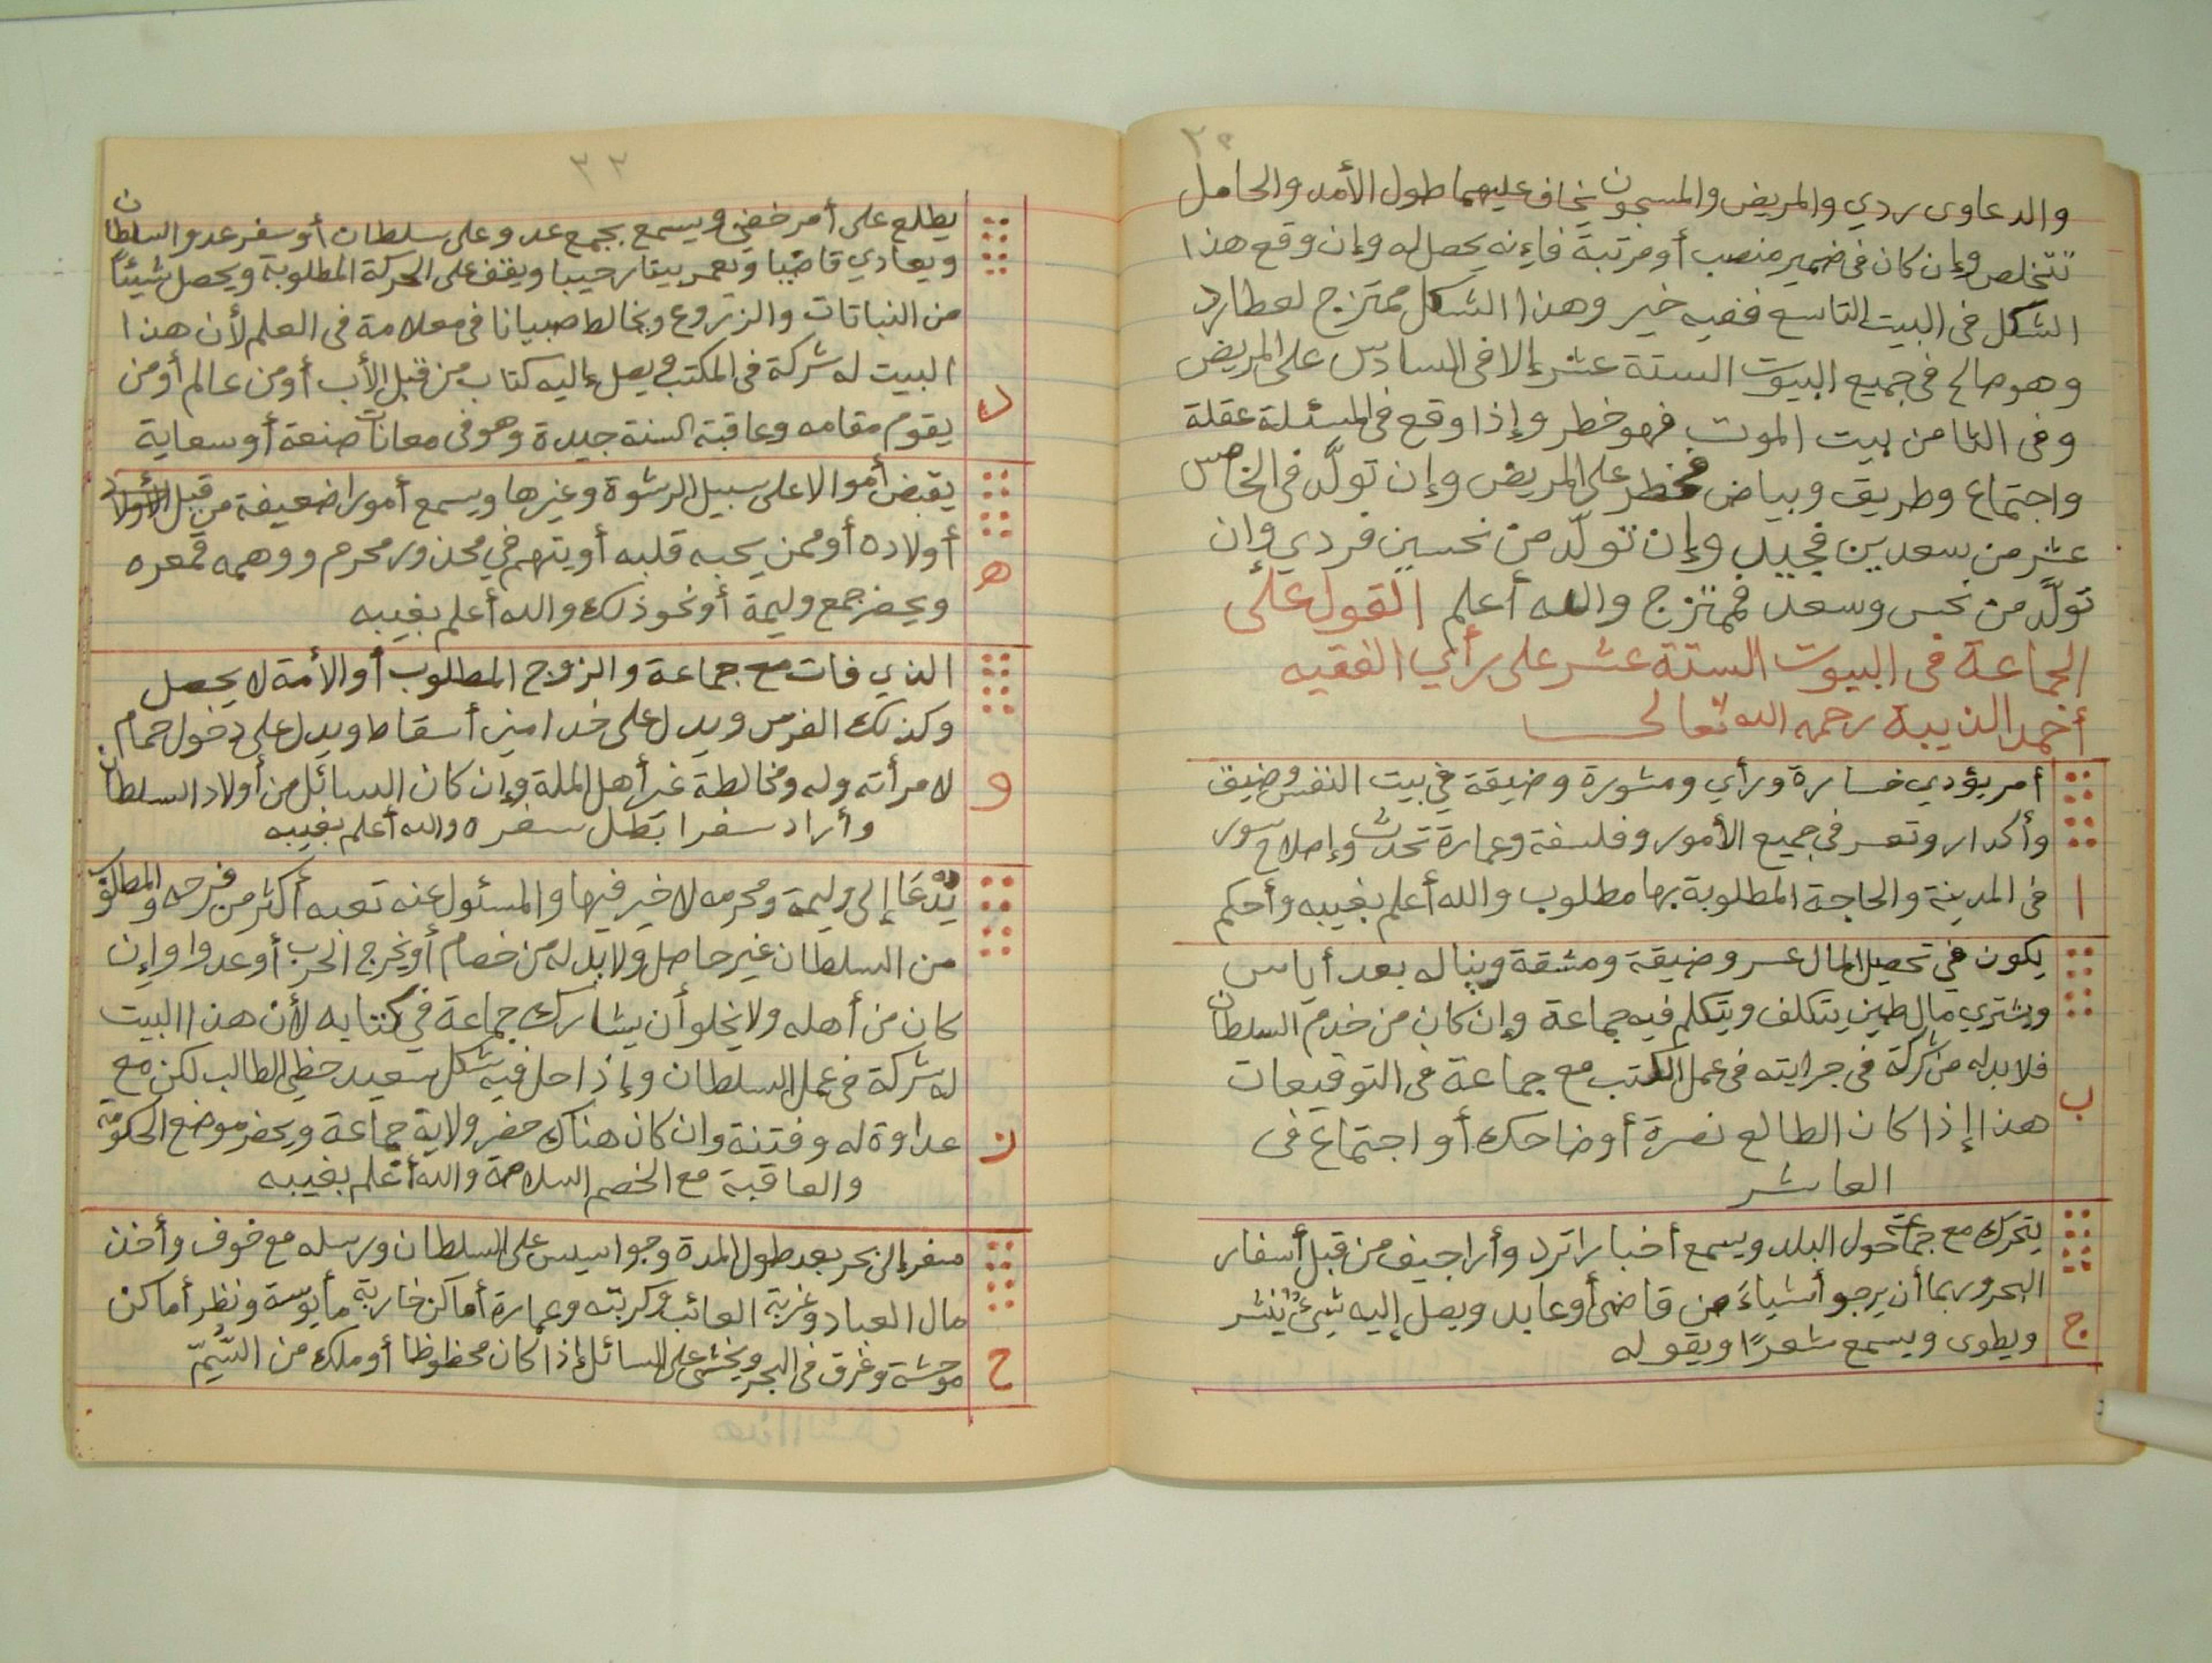 والدعاوى ردي والمريض والمسجون يخاف عليهما طول الأمد والحامل
تتخلص وإن كان فى ضمير منصب أو مرتبة فإنه يحصل له وإن وقع هذا
الشكل فى البيت التاسع ففيه خير وهذا الشكل ممتزج لعطارد
وهو صالح فى جميع البيوت الستة عشر إلا فى السادس على المريض
وفى الثامن بيت الموت فهو خطر وإذا وقع فى المسئلة عقلة
واجتماع وطريق وبياض فخطر على المريض وإن تولّد فى الخامس
عشر من سعدين فجيد وإن تولّد من نحسين فردي وإن
تولّد من نحس وسعد فممتزج والله أعلم القول على
الجماعة فى البيوت الستة عشر على رأي الفقيه
أحمد الذيبة رحمه الله تعالى
أمر يؤدي خسارة ورأي ومشورة وضيقة في بيت النفس وضيق
وأكدار وتعسر فى جميع الأمور وفلسفة وعمارة تحدث وإصلاح سور
ا فى المدينة والحاجة المطلوبة بها مطلوب والله أعلم بغيبه وأحكم
يكون في تحصيل المال عسر وضيقة ومشقة ويناله بعد أياس
ويشتري مال طين يتكلف ويتكلم فيه جماعة وإن كان من خدم السلطان
ب فلا بد له من شركة فى جرايته فى عمل الكتب مع جماعة فى التوقيعات
هذا إذا كان الطالع نصرة أو ضاحك أو اجتماع فى
العاشر
يتحرك مع جماعة حول البلد ويسمع أخبارا ترد وأراجيف من قبل أسفار
البحر وربما أن يرجو أشياءَ من قاضى أو عابد ويصل إليه شئ ينشر
ج ويطوى ويسمع شعرًا ويقوله
٣٣
يطلع على أمر خفي ويسمع بجمع عدو على سلطان أو سفر عدو السلطان
ويعادي قاضيا وتعمر بيتا رحيبا ويقف على الحركة المطلوبة ويحصل شيئًا
من النباتات والزروع ويخالط صبيانا فى معلامة فى العلم لأن هذا
د البيت له شركة فى المكتب ويصل إليه كتاب من قبل الأب أو من عالم أو من
يقوم مقامه وعاقبة السنة جيدة وهو فى معانات صنعة أو سعاية
يقبض أموالا على سبيل الرشوة وغيرها ويسمع أمورا ضعيفة من قبل
ه أولاده أو ممن يحبه قلبه أو يتهم في محذور محرم ووهمه
ويحضر جمع وليمة أو نحو ذلك والله أعلم بغيبه
الذي فات مع جماعة والزوج المطلوب أو الأمة لا يحصل
وكذلك الفرس ويدل على خدامين أسقاط ويدل على دخول حمام
و لامرأته وله ومخالطة غير أهل الملة وإن كان السائل من أولاد السلطان
وأراد سفرا بَطل سفره والله أعلم بغيبه
يُدعَا إلى وليمة ومحرمه لا خير فيها والمسئول عنه تعبه أكثر من فرحه والمطلوب
من السلطان غير حاصل ولا بد له من خصام أو يخرج الحرب أو عدوا وإن
كان من أهله ولا يخلو أن يشارك جماعة في كتابه لأن هذا البيت
له شركة فى عمل السلطان وإذا حل فيه شكل سعيد حظي الطالب لكن مع
ز عداوة له وفتنة وان كان هناك حضر ولاية جماعة ويحضر موضع الحكومة
والعاقبة مع الخصم السلامة والله أعلم بغيبه
سفر إلى بحر بعد طول المدة وجواسيس على السلطان ورسله مع خوف وأخذ
مال العباد وغربة الغائب وكربته وعمارة أماكن خاربة مأيوسة ونظر أماكن
ح موحشة وغرق فى البحر ويخشى على السائل إذا كان محظوظا أو ملك من